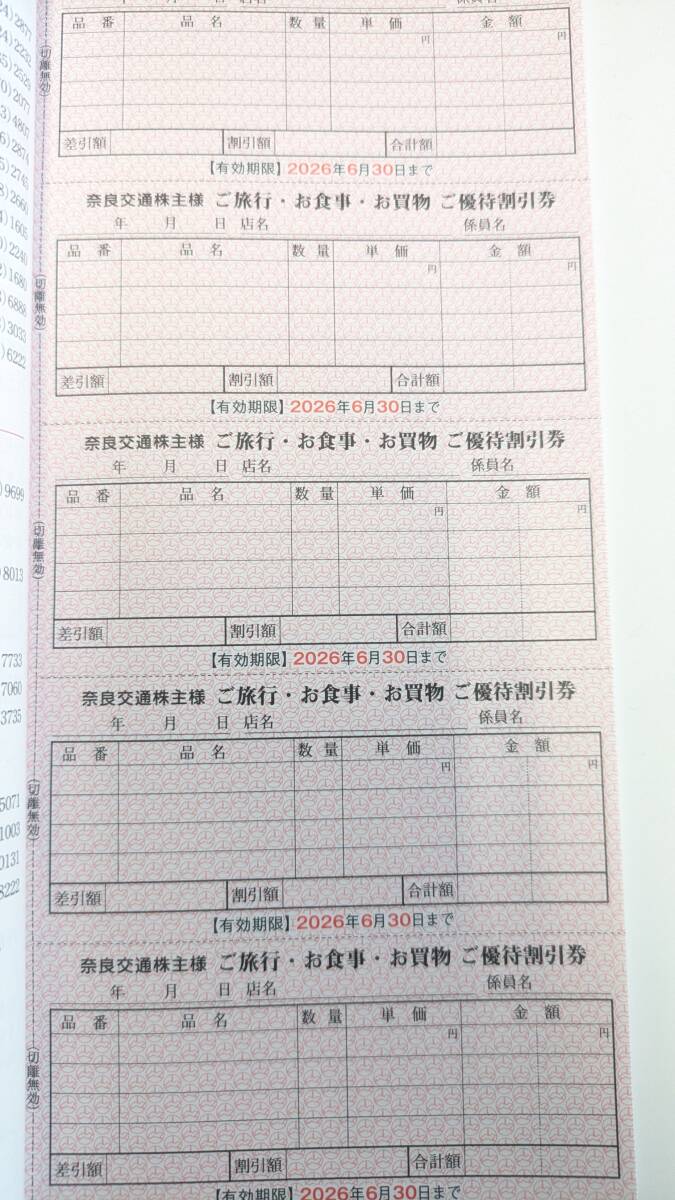 年 月 日 店名 係員名
品番 品名 数量 単価 金額
円 円
差引額 割引額 合計額
【有効期限】2026年6月30日まで
奈良交通株主様 ご旅行・お食事・お買物 ご優待割引券
年 月 日 店名 係員名
品番 品名 数量 単価 金額
円 円
差引額 割引額 合計額
【有効期限】2026年6月30日まで
奈良交通株主様 ご旅行・お食事・お買物 ご優待割引券
年 月 日 店名 係員名
品番 品名 数量 単価 金額
円 円
差引額 割引額 合計額
【有効期限】2026年6月30日まで
奈良交通株主様 ご旅行・お食事・お買物 ご優待割引券
年 月 日 店名 係員名
品番 品名 数量 単価 金額
円 円
差引額 割引額 合計額
【有効期限】2026年6月30日まで
奈良交通株主様 ご旅行・お食事・お買物 ご優待割引券
年 月 日 店名 係員名
品番 品名 数量 単価 金額
円 円
差引額 割引額 合計額
【有効期限】2026年6月30日まで
(切離無効)
(切離無効)
(切離無効)
(切離無効)
(切離無効)
4)2877
4)2232
5)2529
0)2077
3)4807
6)2874
5)2745
8)2660
4)1605
0)2240
2)1680
3)6888
)3033
)6222
)9699
8013
7733
7060
3735
5071
1003
0131
8222